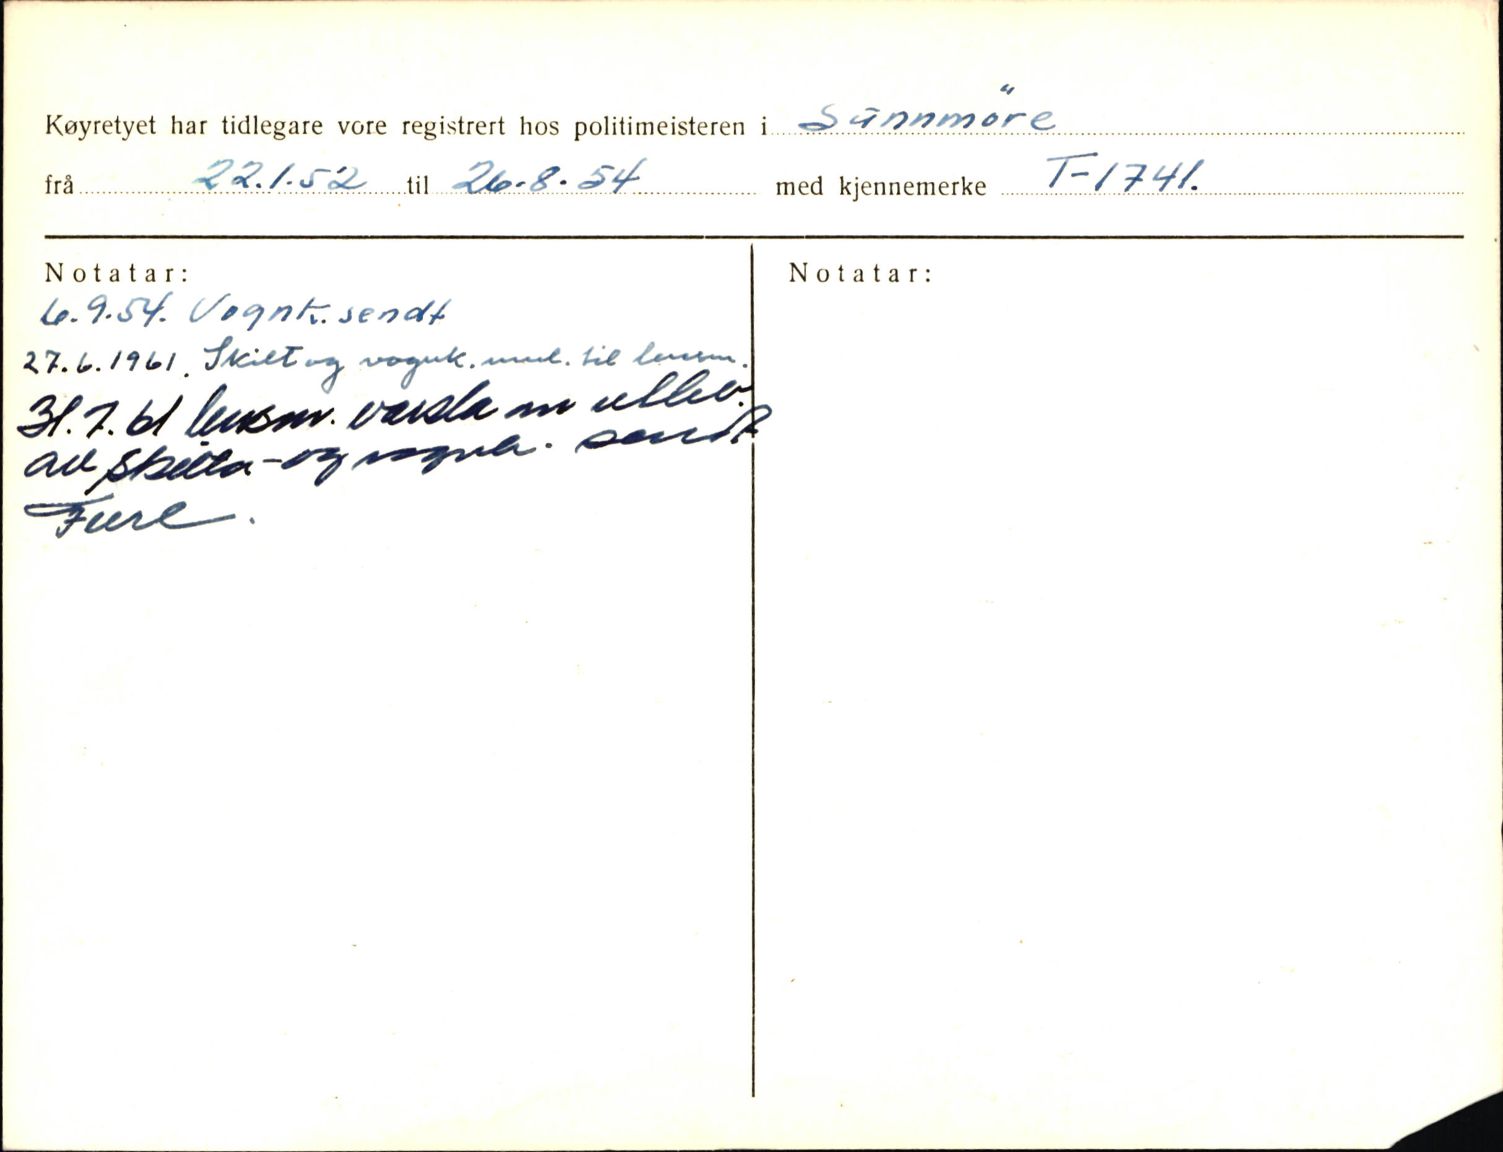 Køyretyet har tidlegare vore registrert hos politimeisteren i Sünnmöre
frå 22.1.52 til 26.8.54 med kjennemerke T-1741.
Notatar:
Notatar:
6.9.54. Vognk. sendt
27.6.1961. Skilt og vognk. til lensm.
31.7.61 lensm. varsla om utlev.
av skilta - og vognk. sendt
Fure.